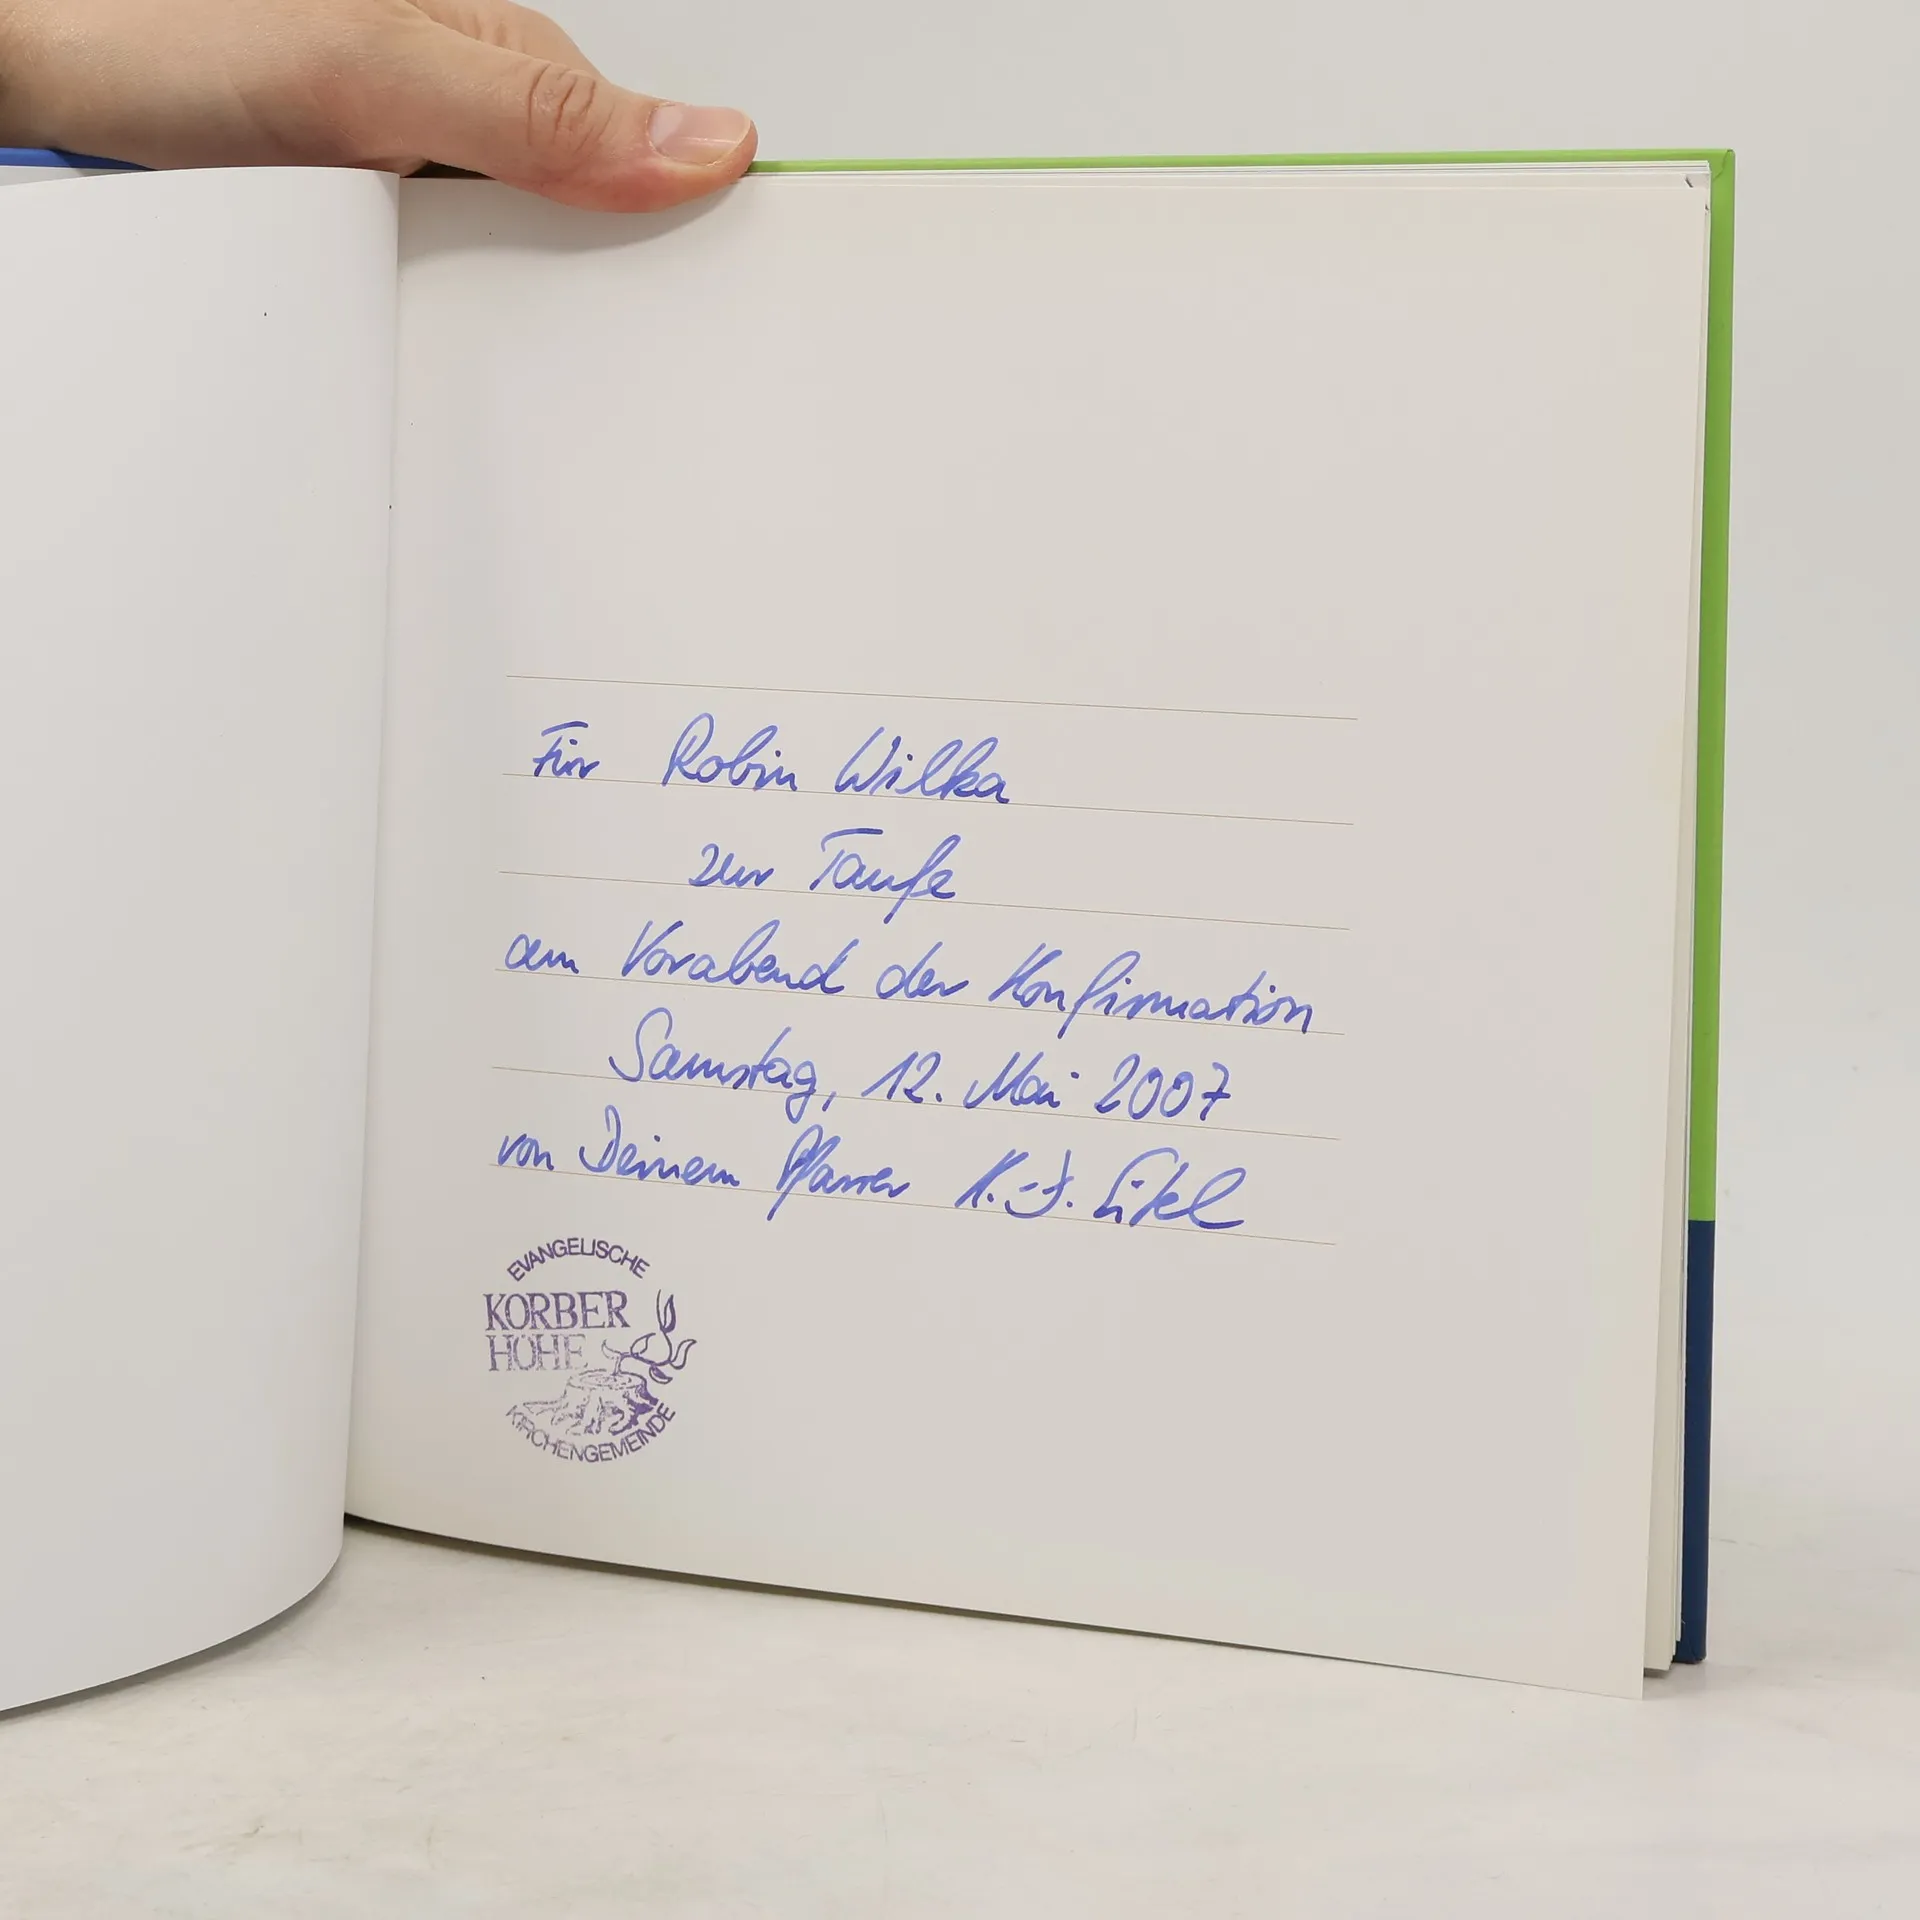 Für Robin Wilka
zur Taufe
am Vorabend der Konfirmation
Samstag, 12. Mai 2007
von Deinem Pfarrer K.-J. Eitel
EVANGELISCHE
KORBER
HÖHE
KIRCHENGEMEINDE